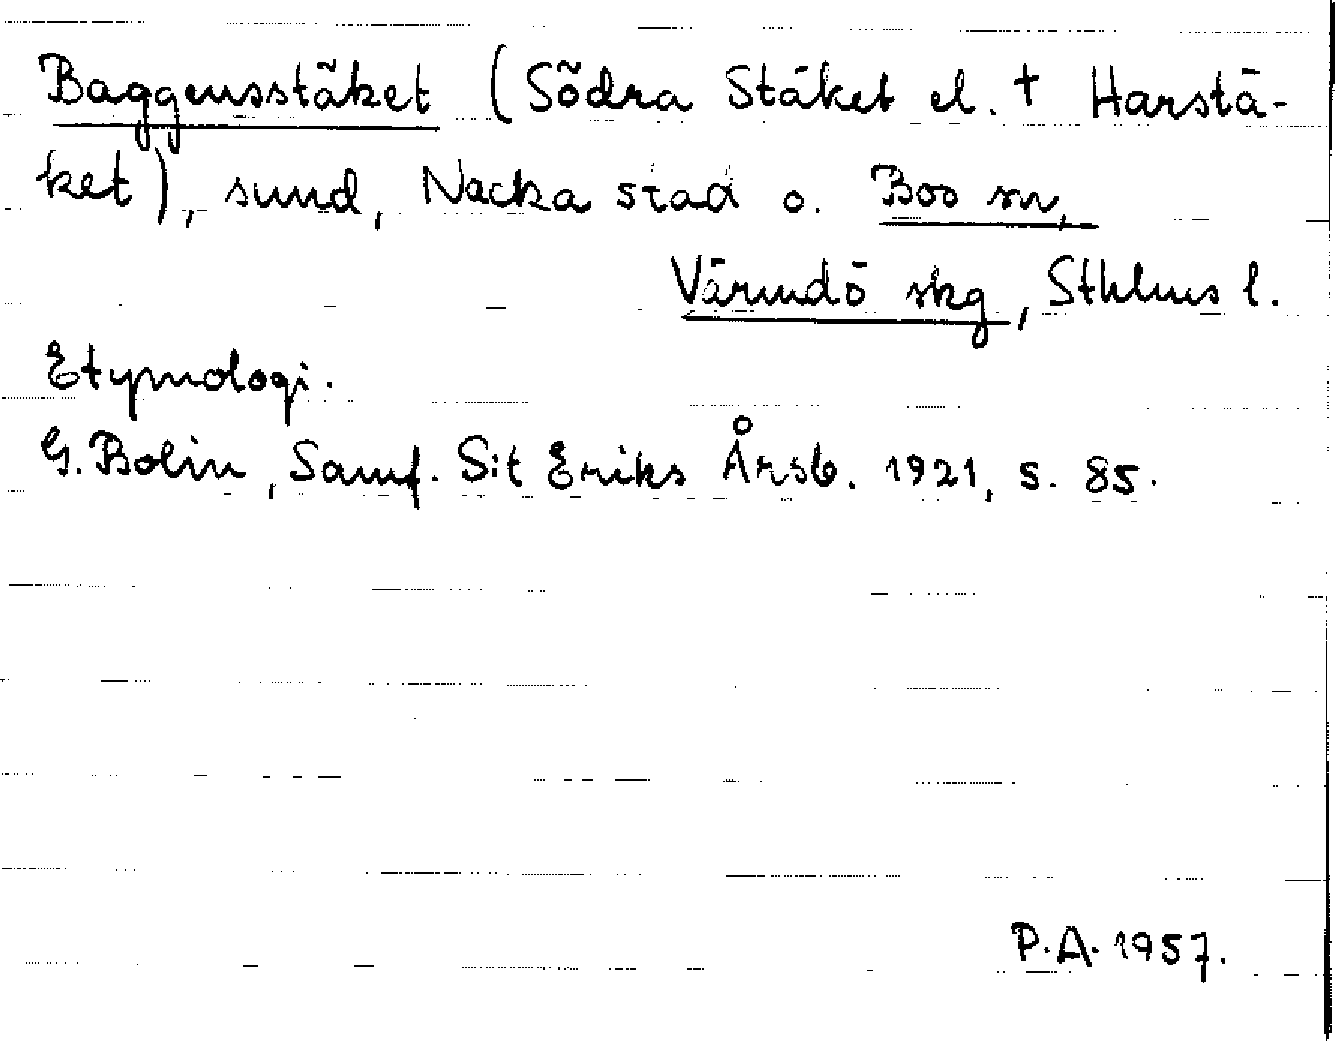 Baggensstäket (Södra Stäket el. † Harstä-
ket), sund, Nacka stad o. Boo sn,
Värmdö skg, Sthlms l.
Etymologi.
G. Bolin, Samf. S:t Eriks Årsb. 1921, s. 85.
P.A. 1957.